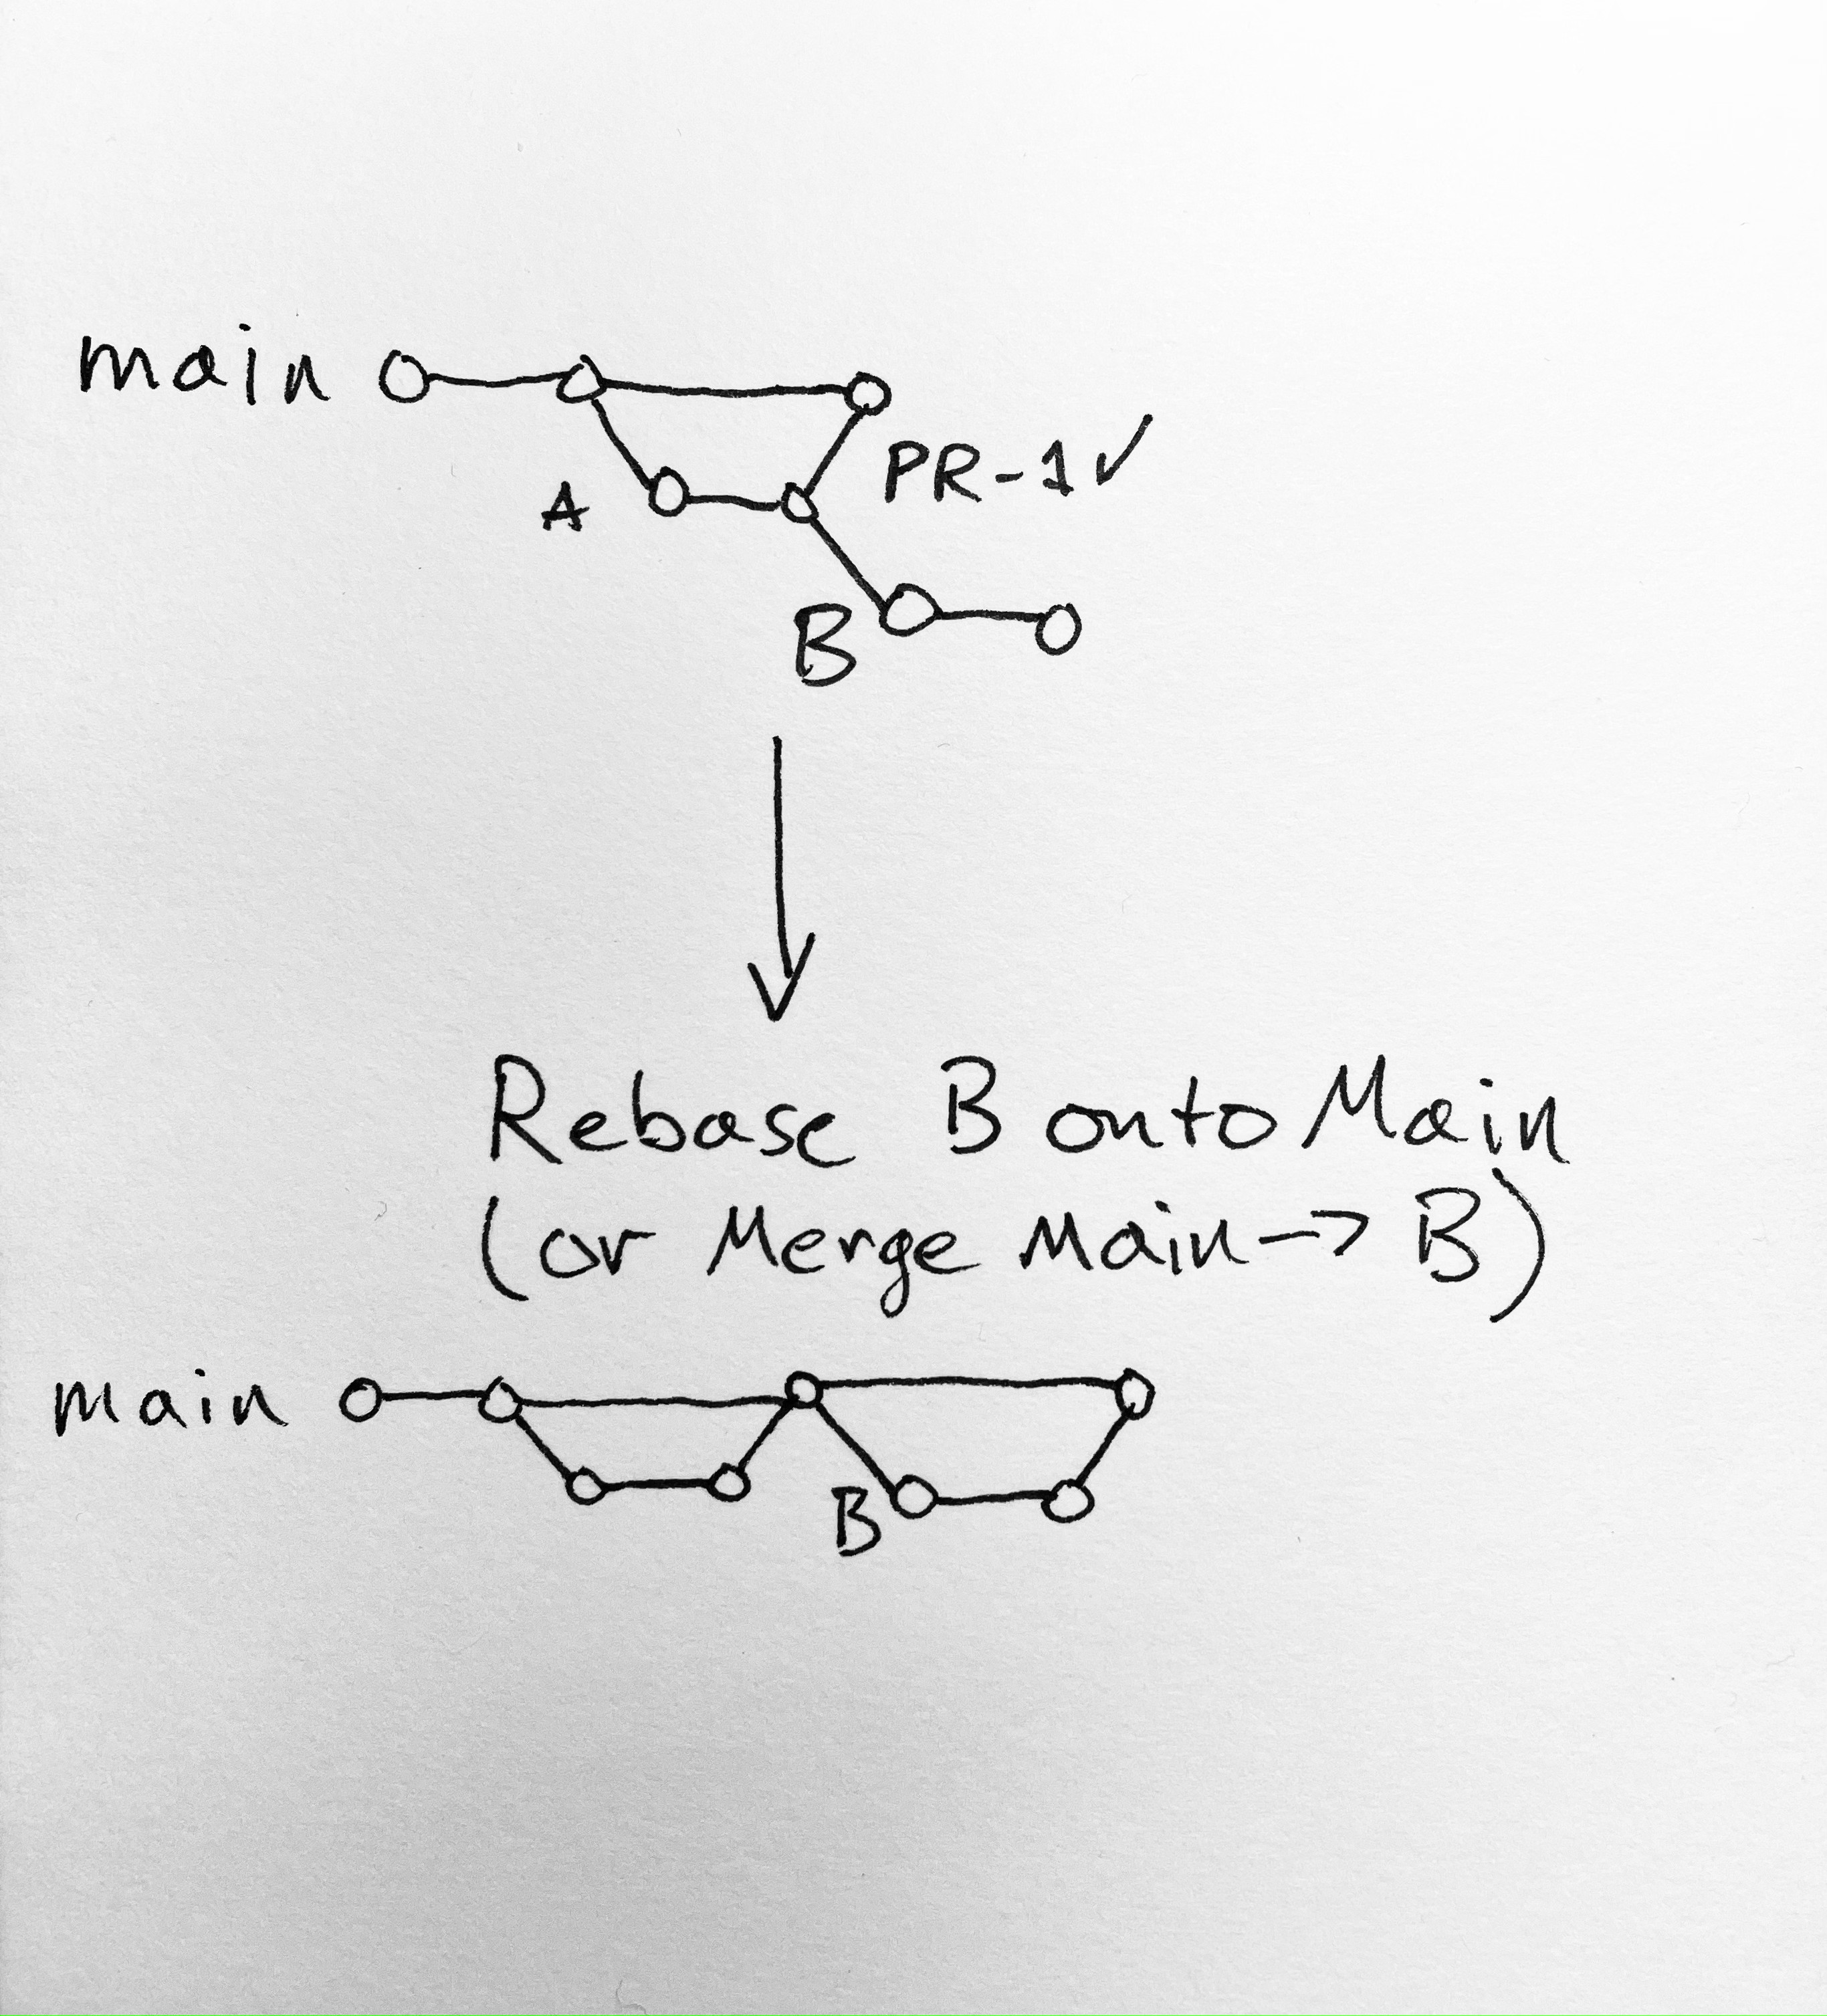 main
PR-1✓
A
B
Rebase B onto Main
(or Merge Main->B)
main
B